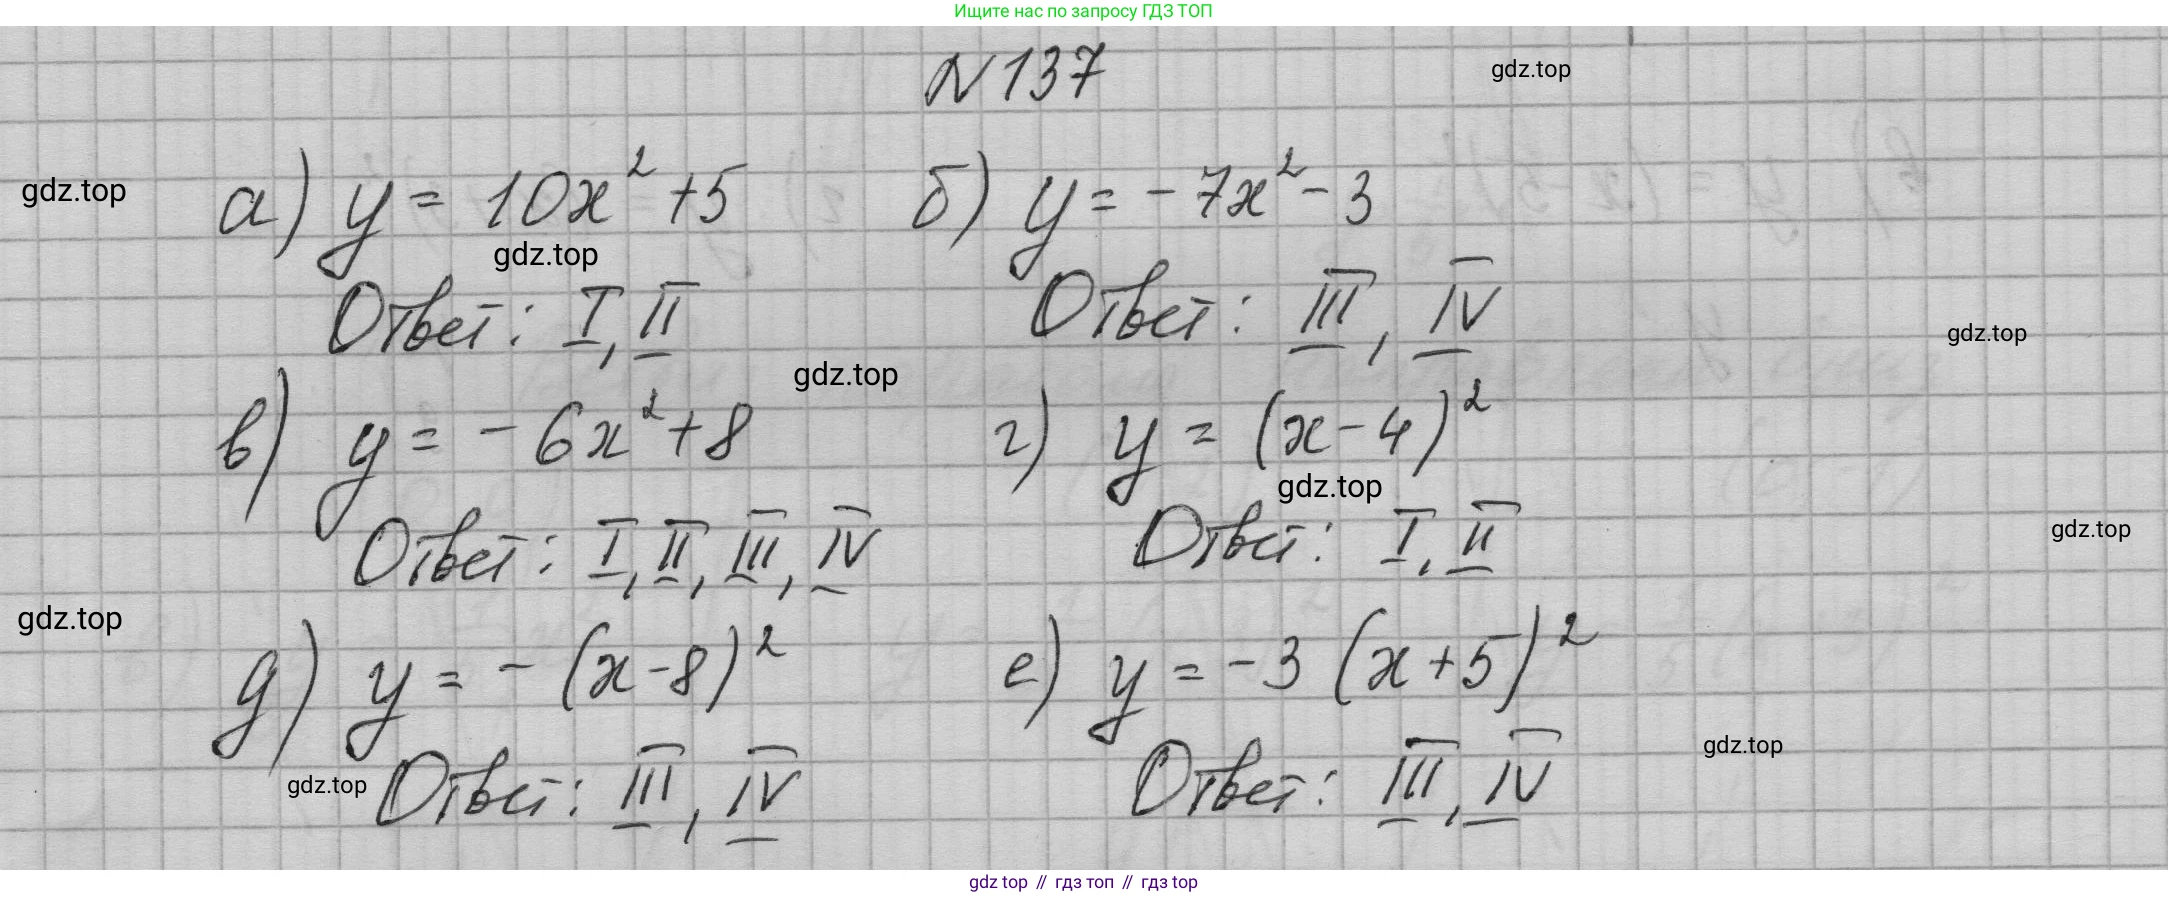 Ищите нас по запросу ГДЗ ТОП
N 137
gdz.top
а) y = 10x² + 5 б) y = - 7x² - 3
gdz.top
gdz.top
Ответ: I, II Ответ: III, IV
gdz.top
gdz.top
в) y = - 6x² + 8 г) y = (x - 4)²
gdz.top
Ответ: I, II, III, IV Ответ: I, II
gdz.top
gdz.top
д) y = - (x - 8)² е) y = - 3 (x + 5)²
gdz.top
Ответ: III, IV Ответ: III, IV
gdz.top
gdz top // гдз топ // гдз top